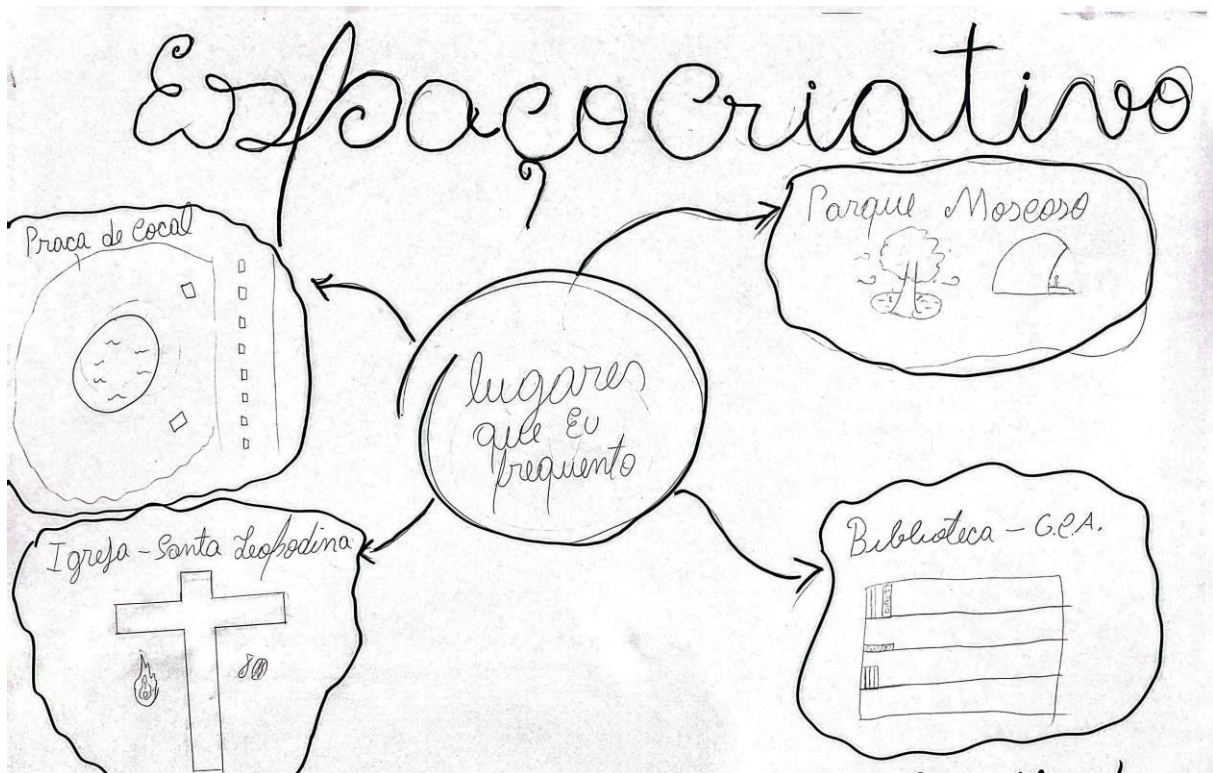 Espaço Criativo
Praça de Cocal
Parque Moscoso
lugares
que Eu
frequento
Igreja - Santa Leopodina
Biblioteca - G.P.A.